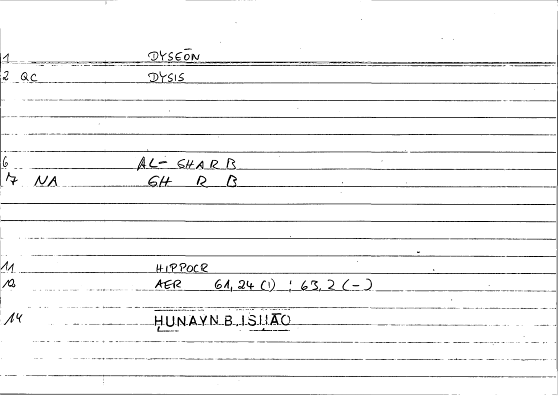 1 DYSEŌN
2 QC DYSIS
6 AL-GHARB
7 NA GH R B
11 HIPPOCR
12 AER 61,24 (1) ; 63,2 (-)
14 ḤUNAYN B. ISḤĀQ